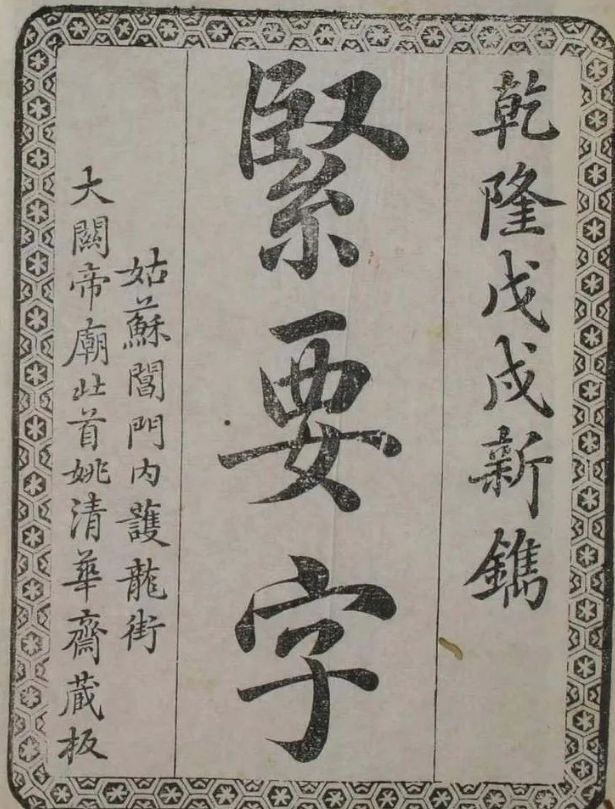 乾隆戊戌新鐫
緊要字
姑蘇閶門内護龍街
大關帝廟北首姚清華齋蔵板